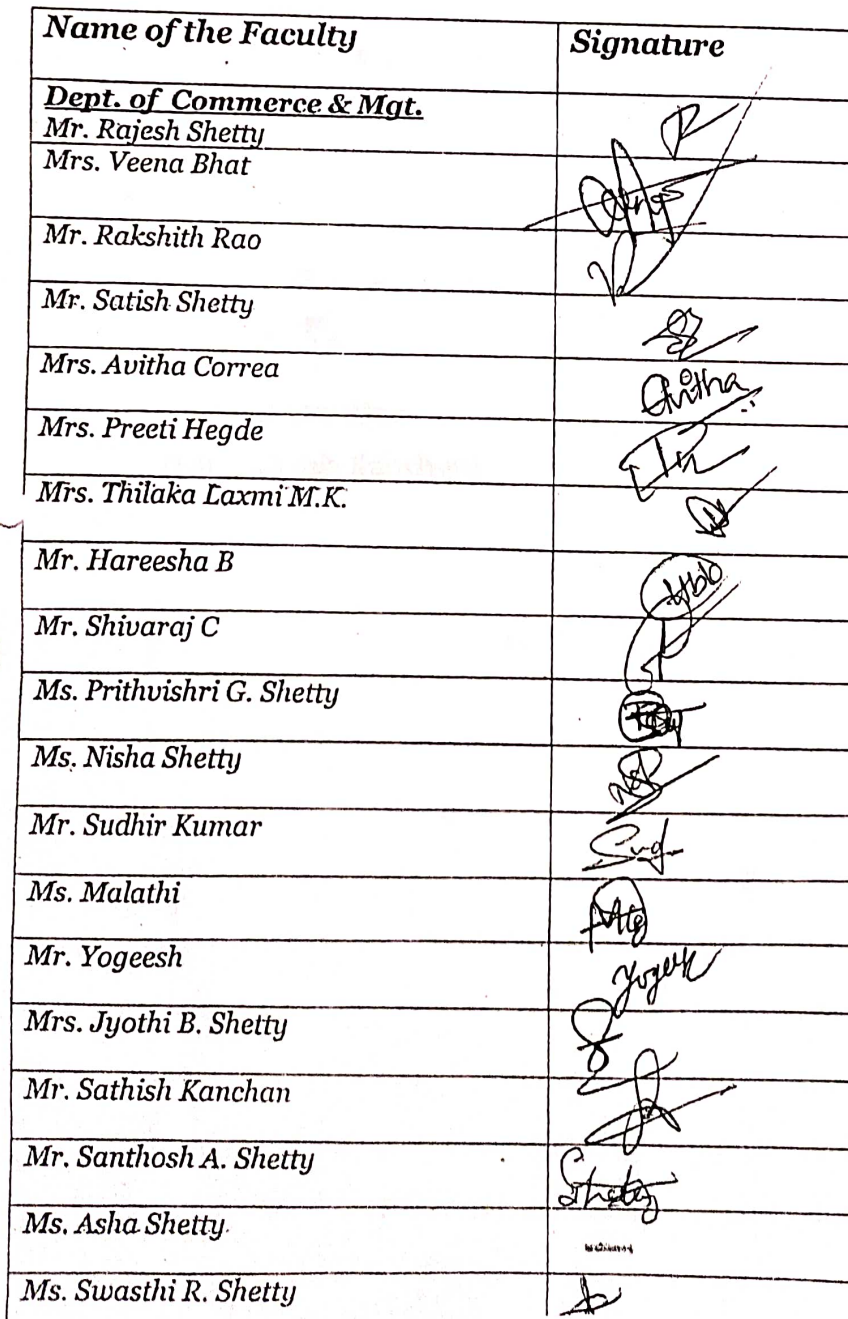 Name of the Faculty Signature
Dept. of Commerce & Mgt.
Mr. Rajesh Shetty
Mrs. Veena Bhat
Mr. Rakshith Rao
Mr. Satish Shetty
Mrs. Avitha Correa Avitha
Mrs. Preeti Hegde
Mrs. Thilaka Laxmi M.K.
Mr. Hareesha B
Mr. Shivaraj C
Ms. Prithvishri G. Shetty
Ms. Nisha Shetty
Mr. Sudhir Kumar
Ms. Malathi
Mr. Yogeesh
Mrs. Jyothi B. Shetty
Mr. Sathish Kanchan
Mr. Santhosh A. Shetty Shetty
Ms. Asha Shetty
Ms. Swasthi R. Shetty